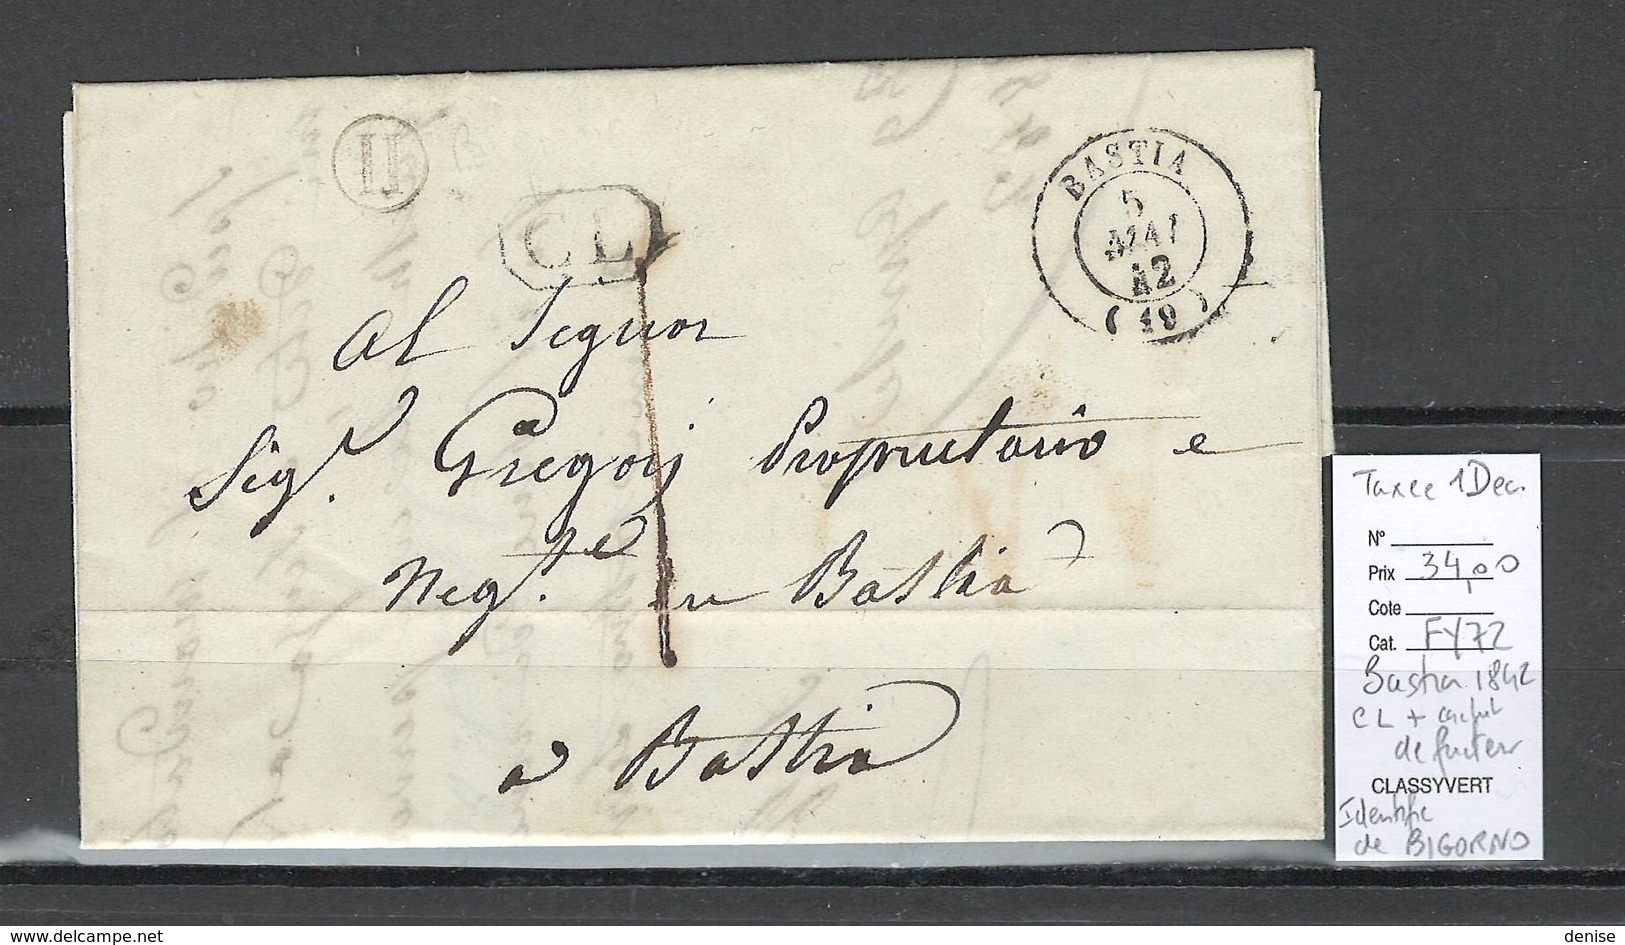 H
CL
BASTIA
5
MAI
42
(19)
Al Segnor
Sig.r Gregorj Proprietario e
Neg.te in Bastia
a Bastia
Taxée 1 Dec.
N°
Prix 34,00
Cote
Cat. FY72
Bastia 1842
CL + cachet
de facteur
CLASSYVERT
Identifié
de BIGORNO
www.delcampe.net
denise